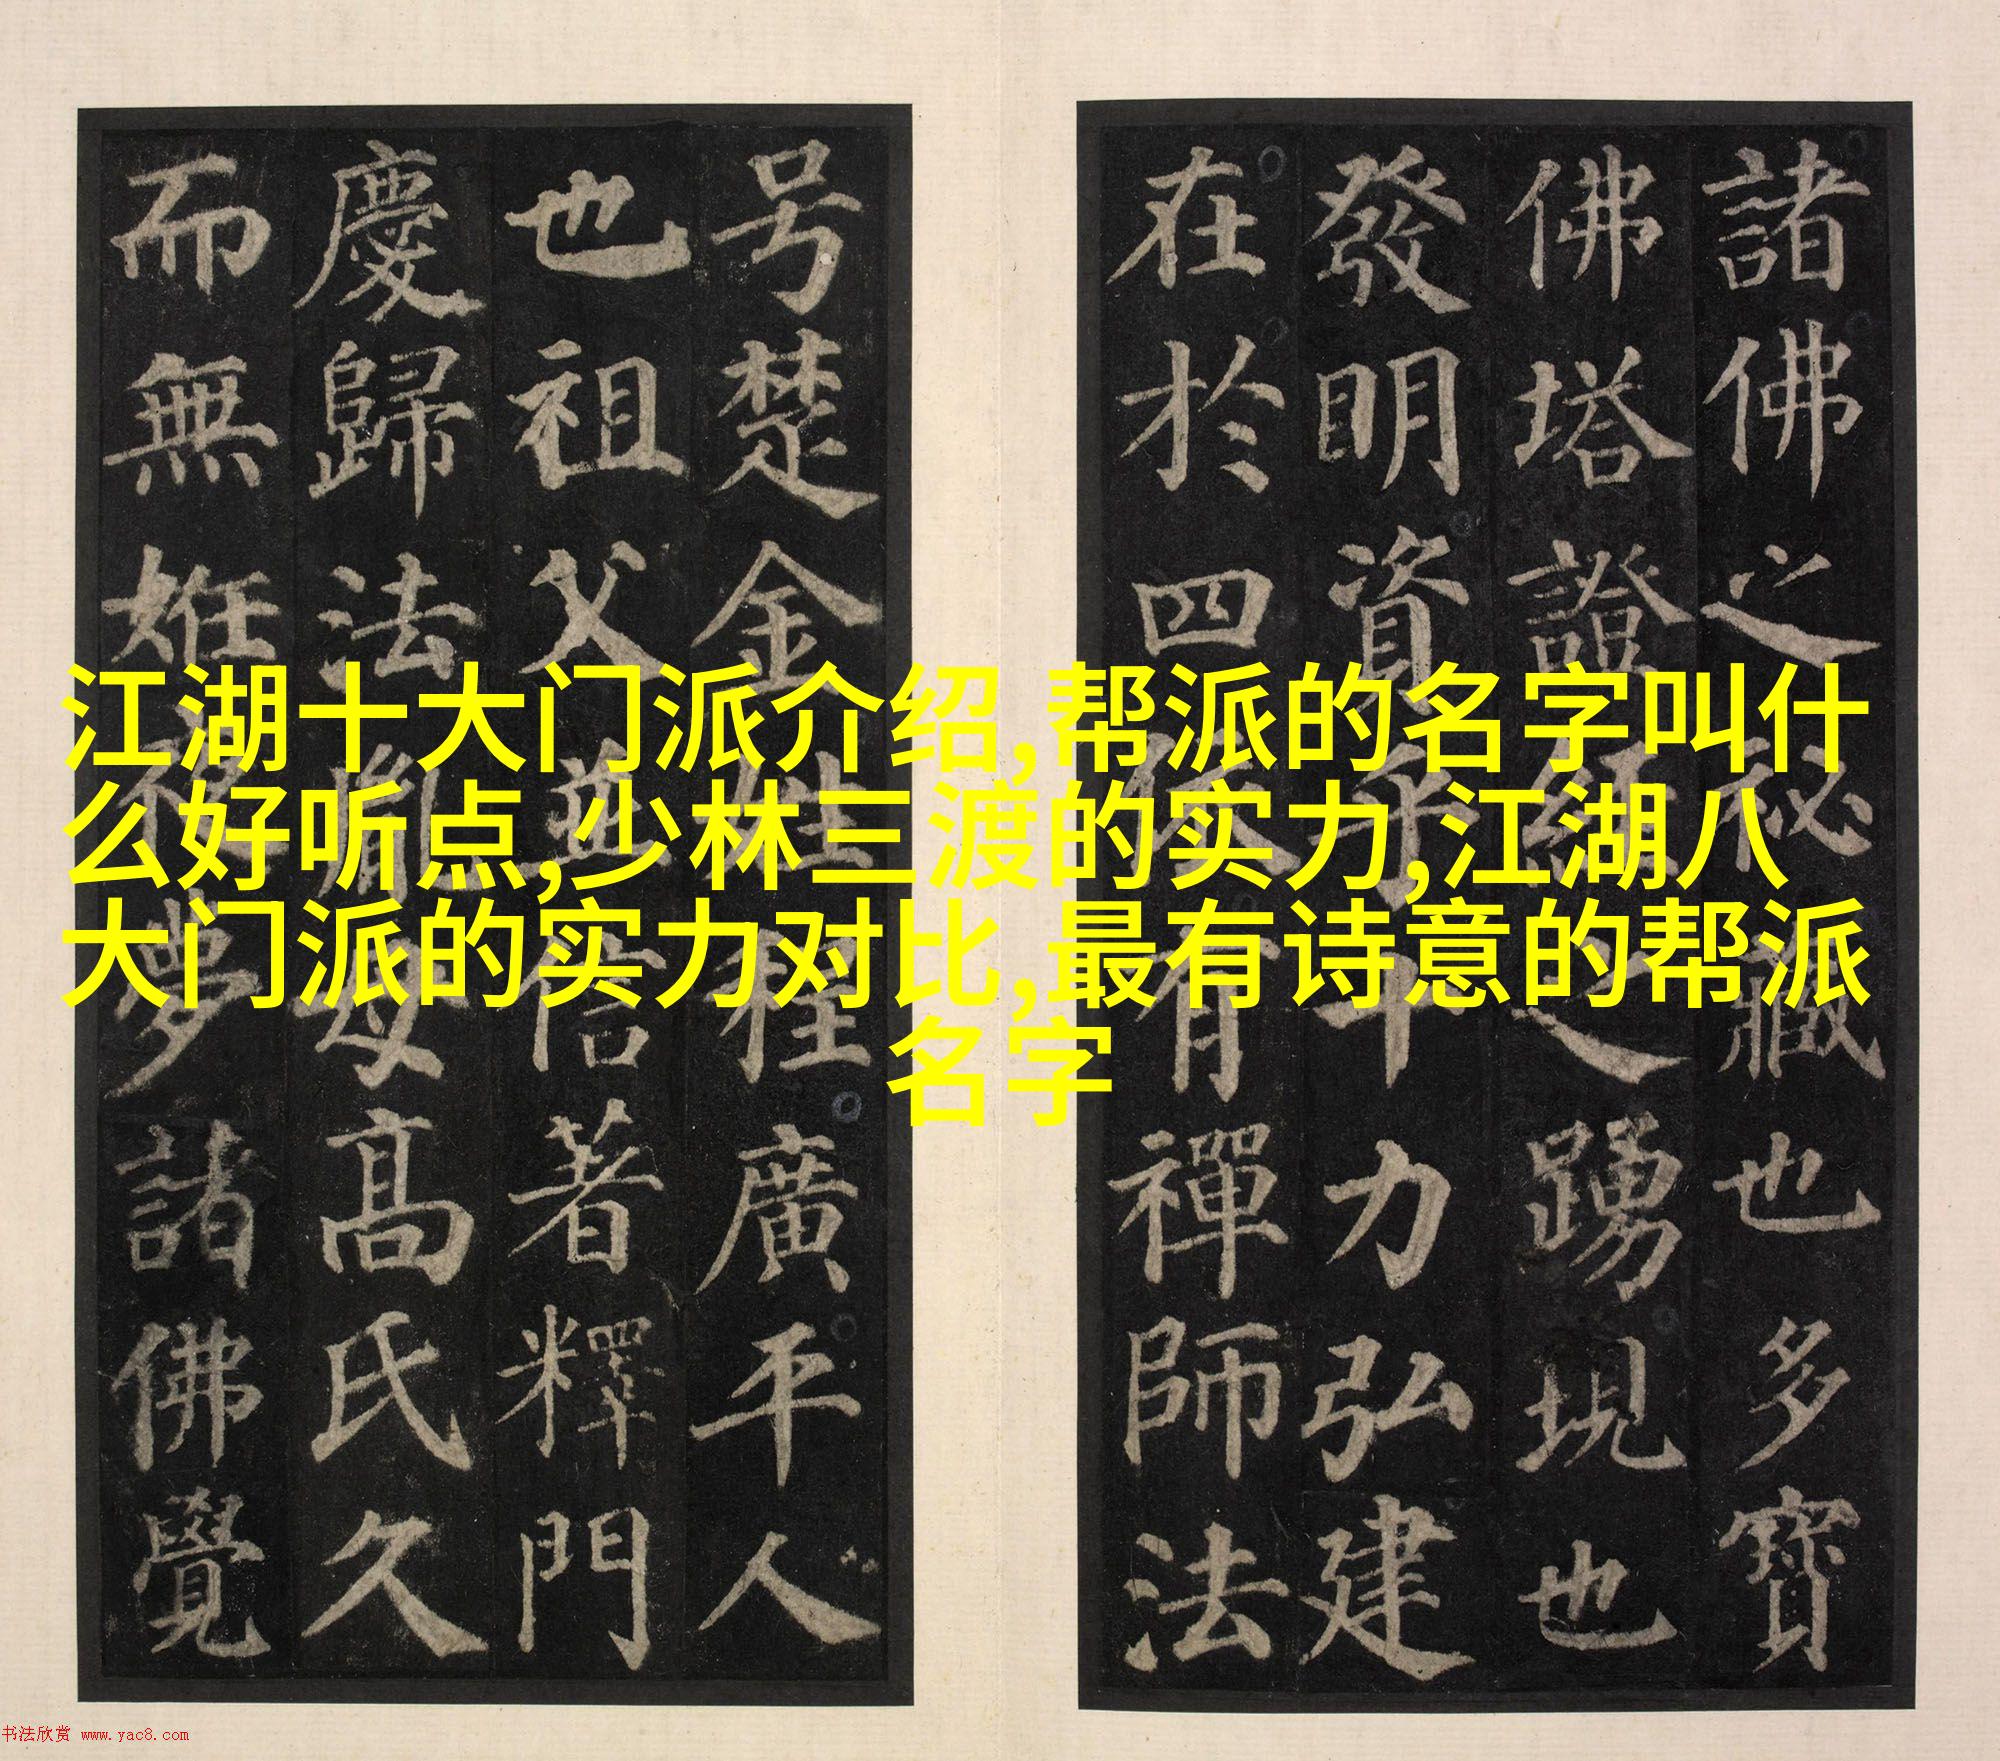 諸佛之秘藏也多寶
佛塔證經之踴現也
發明資乎十力弘建
在於四依有禪師法
号楚金姓程廣平人
也祖父並信著釋門
慶歸法胤母高氏久
而無姙夜夢諸佛覺
江湖十大门派介绍,帮派的名字叫什
么好听点,少林三渡的实力,江湖八
大门派的实力对比,最有诗意的帮派
名字
书法欣赏 www.yac8.com